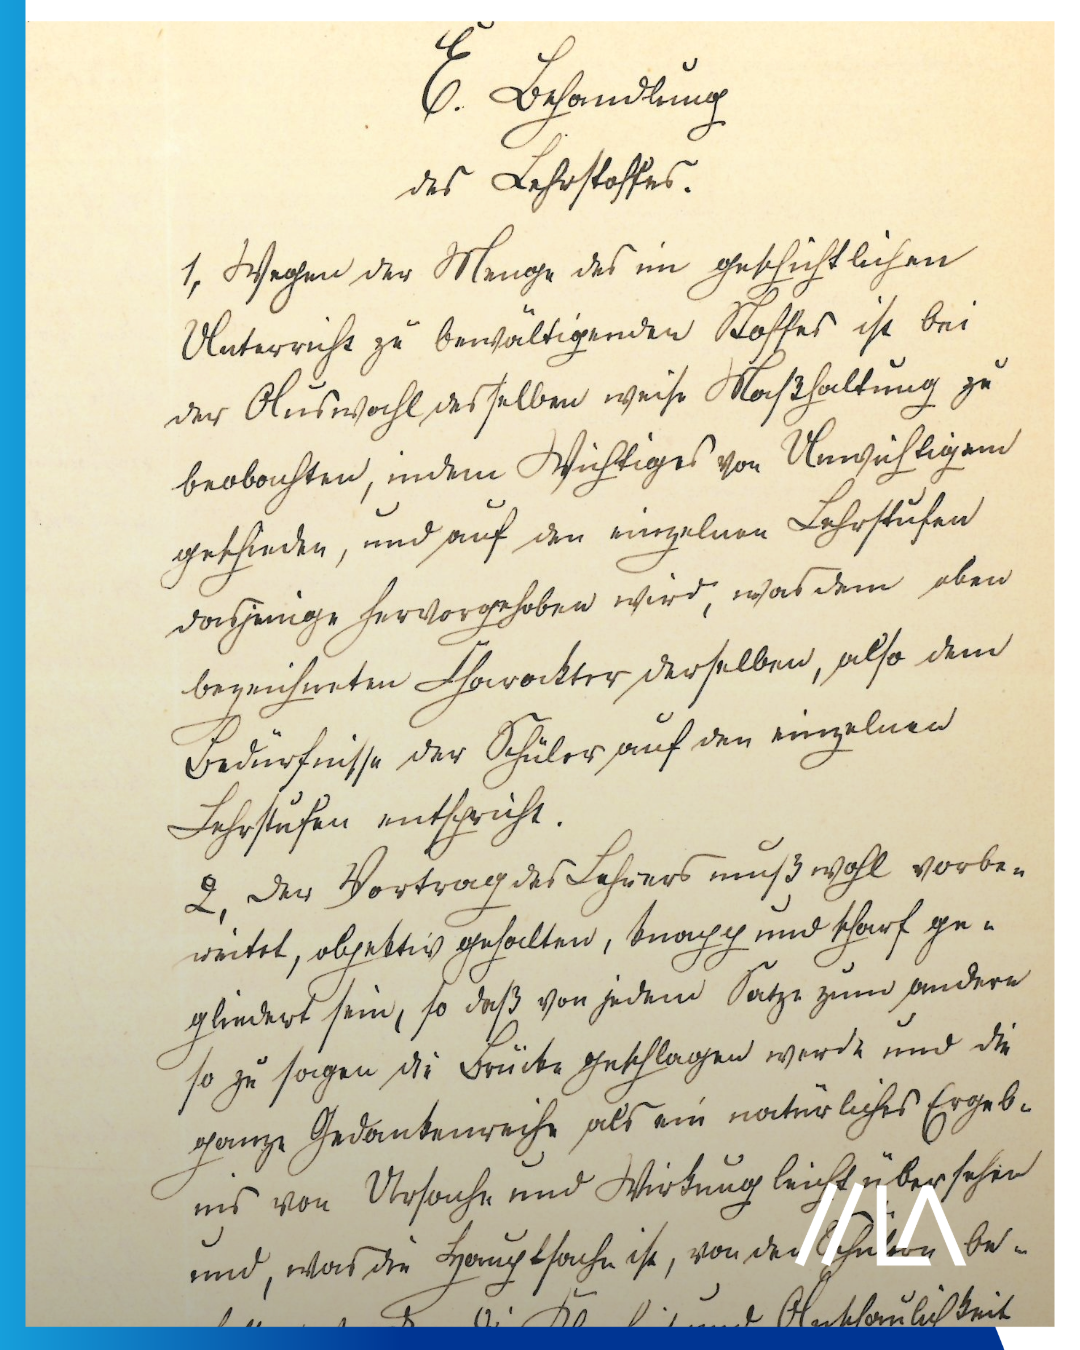 E. Behandlung
des Lehrstoffes.
1, Wegen der Menge des im geschichtlichen
Unterricht zu bewältigenden Stoffes ist bei
der Auswahl desselben weise Maßhaltung zu
beobachten, indem Wichtiges von Unwichtigem
geschieden, und auf den einzelnen Lehrstufen
dasjenige hervorgehoben wird, was dem oben
bezeichneten Charakter derselben, also dem
Bedürfnisse der Schüler auf den einzelnen
Lehrstufen entspricht.
2, Der Vortrag des Lehrers muß wohl vorbe-
reitet, objektiv gehalten, knapp und scharf ge-
gliedert sein, so daß von jedem Satze zum andern
so zu sagen die Brücke geschlagen werde und die
ganze Gedankenreihe als ein natürliches Ergeb-
nis von Ursache und Wirkung leicht übersehen
und, was die Hauptsache ist, von den Schülern be-
und Anschaulichkeit